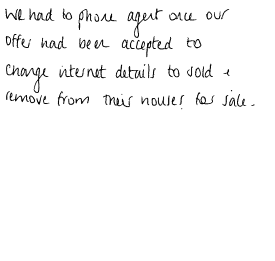 We had to phone agent once our
offer had been accepted to
change internet details to sold +
remove from their houses for sale.